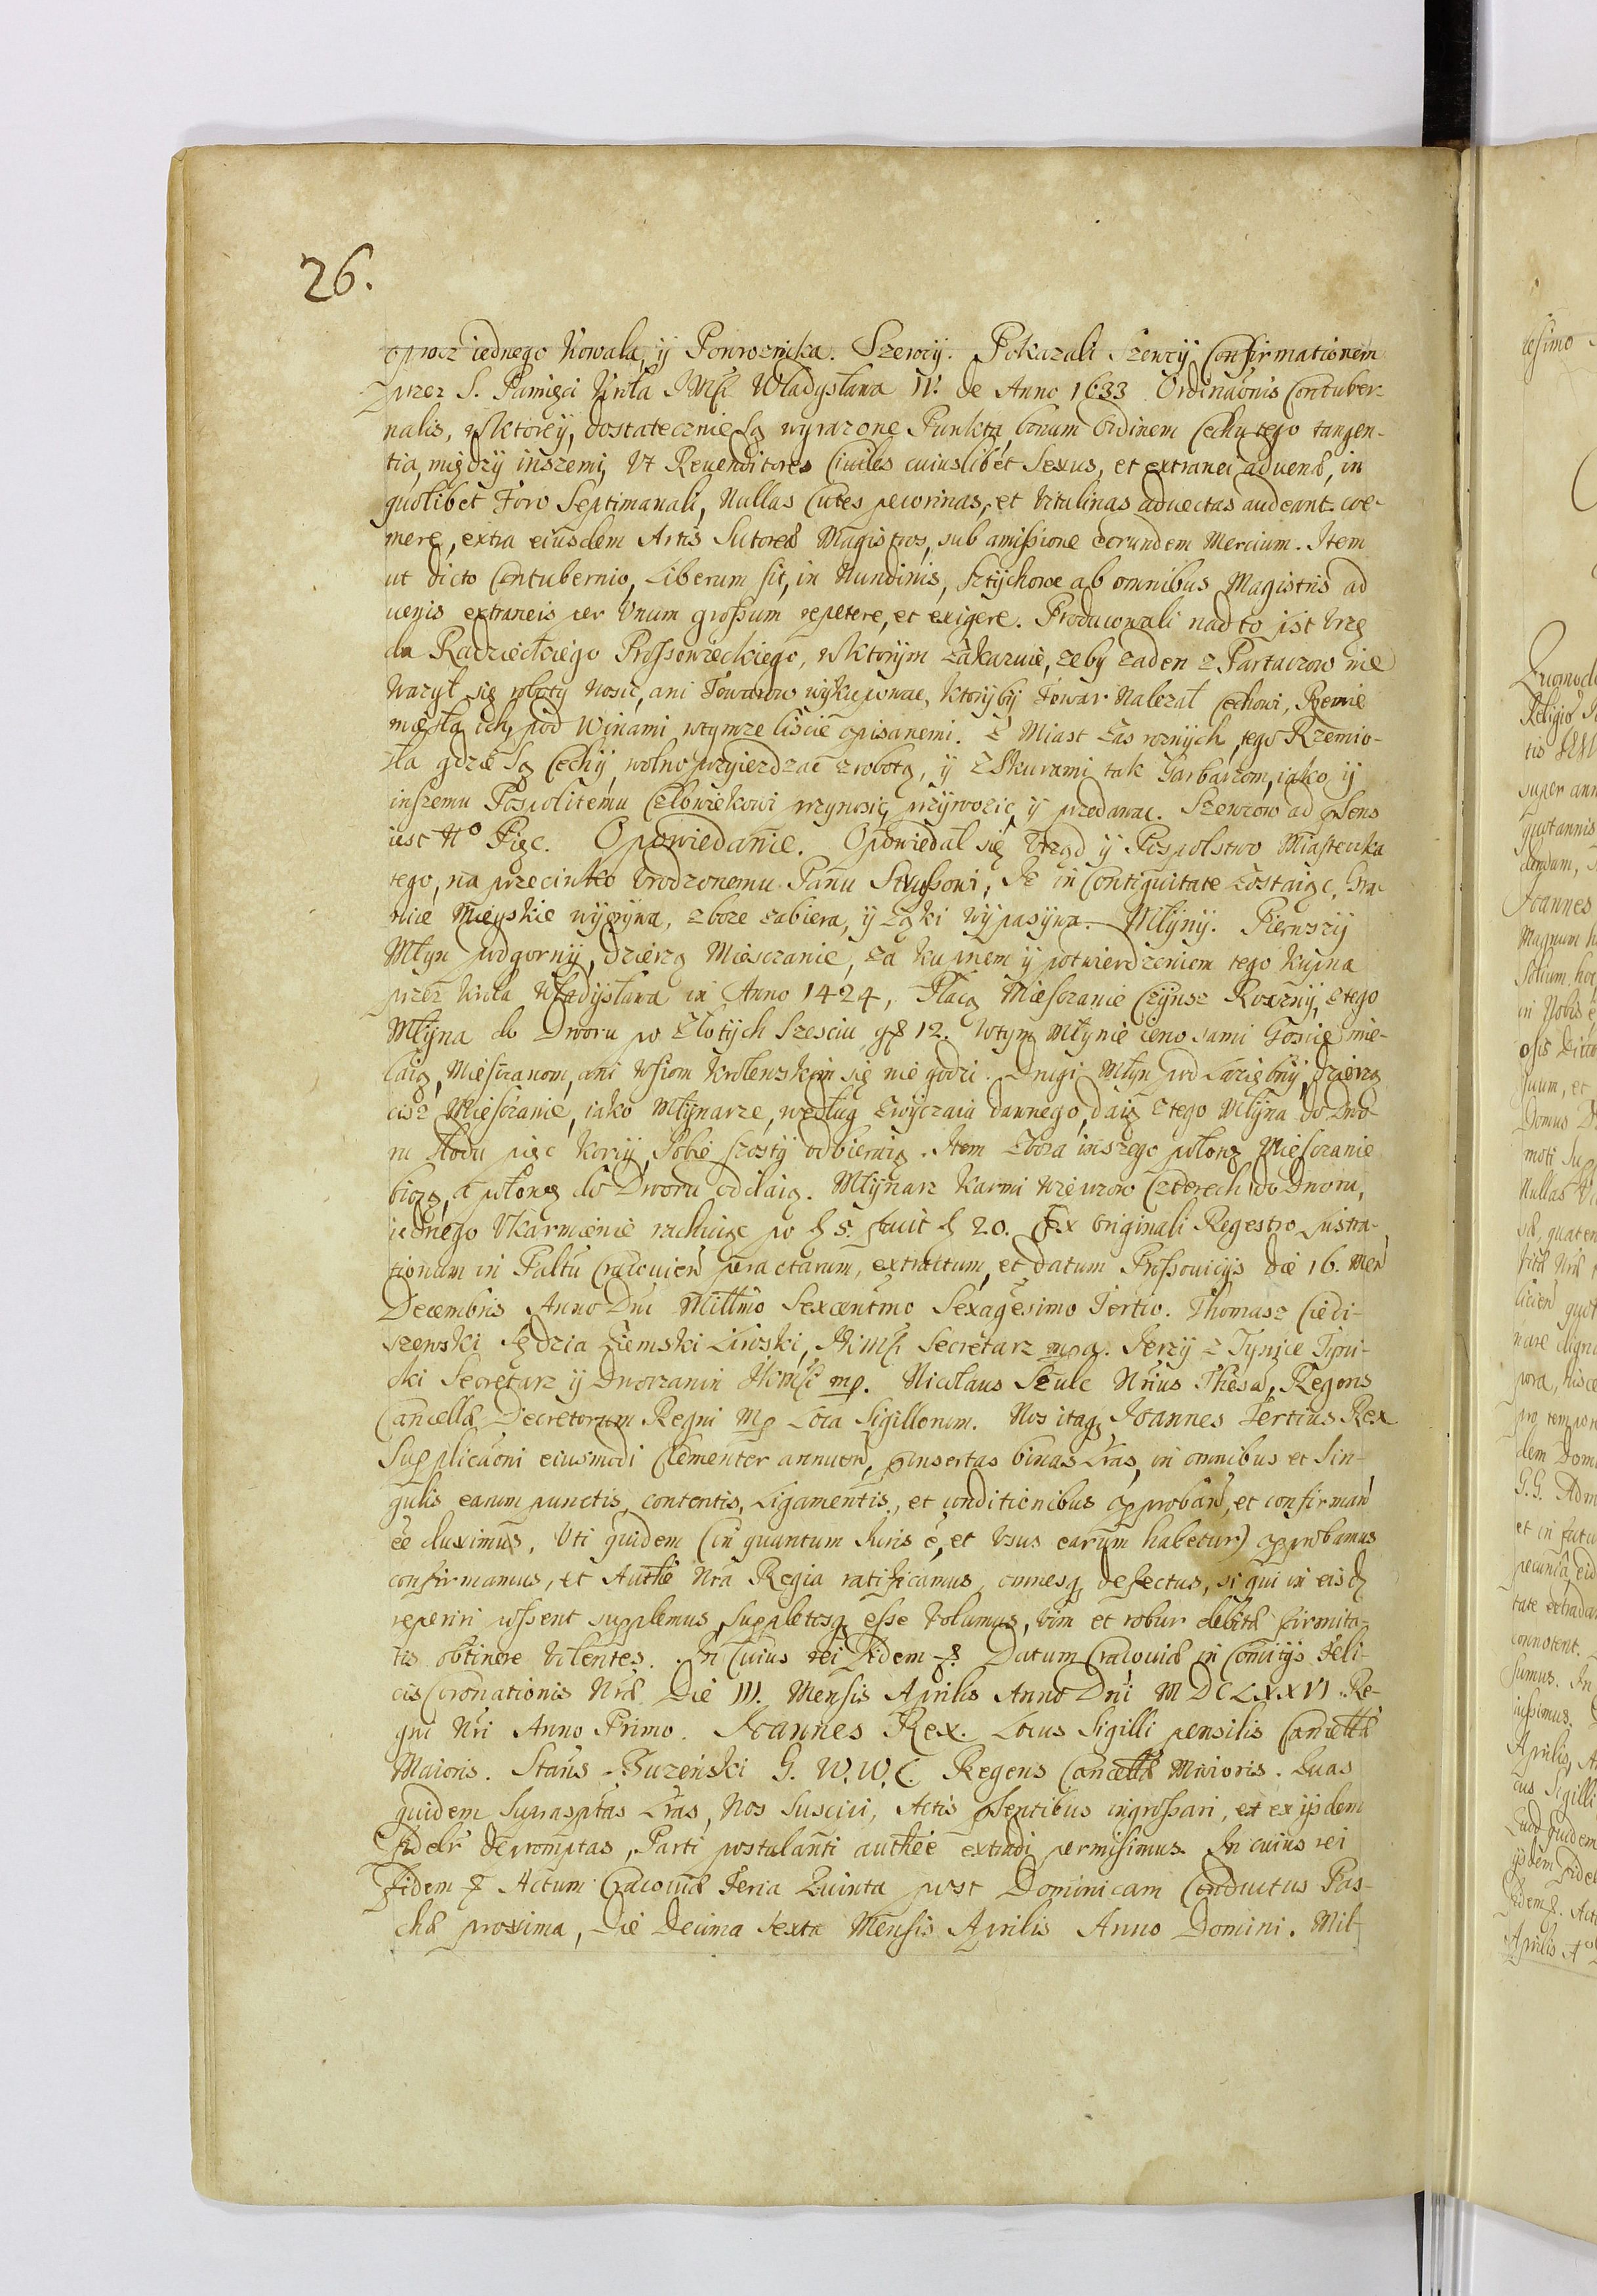 26.
oprocz iednego Kowala, ÿ Powroznika. Szewcÿ. Pokazali Szewcÿ Confirmationem
przez S. Pamięci Krola JMści Władÿsława IV. de Anno 1633 Ordinaōnis Contuber-
nalis, wktoreÿ, dostatecznie są wyrazone Punkta, bonum Ordinem Cechu tego tangen-
tia, międzÿ inszemi, Vt Reuenditores Ciuiles cuiuslibet Sexus, et extranei aduenæ, in
quolibet Foro Septimanali, Nullas Cutes pecorinas, et Vitulinas aduectas audeant coe-
mere, extra eiusdem Artis Sutores Magistros, sub amissione earundem Mercium. Item
ut dicto Contubernio, Liberum sit, in Nundinis, Sztÿchowe ab omnibus Magistris ad
uenis extraneis per Vnum grossum repetere, et exigere. Producowali nad to list Vrzę
du Radzieckiego Proszowieckiego, wktorÿm zakazuie, zeby zaden z Partaczow nie
wazÿł się robotÿ nosić, ani Towarow wÿkupowac, ktorÿbÿ Towar Nalezał Cechowi, Rzemie
męsłą ich, pod Winami wtymze liście opisanemi. Z Miast zas roznÿch, tego Rzemio-
sła gdzie są Cechÿ, wolno przÿiezdzać zrobotą, ÿ zSkurami tak Garbarzom, iako ÿ
inszemu Pospolitemu Człowiekowi przynosić, przÿwozić, ÿ przedawac. Szewcow ad pſens
iest No Pięc. Opowiedanie. Opowiedał się Vrząd ÿ Pospolstwo Miasteczka
tego, na przeciwko Vrodzonemu Panu Strussowi, Ze in Contiguitate zostaiąc, Gra-
nice Mieyskie wÿorywa, zboze zabiera, ÿ Łąki wÿpasÿwa. Młÿnÿ. Pierwszÿ
Młÿn podgornÿ, dzierzą Miesczanie, za kupnem ÿ potwierdzeniem tego kupna
przez Krola Władÿsława in Anno 1424, Płacą Miesczanie Czÿnsz Rocznÿ, ztego
Młÿna do Dworu po Złotÿch Szesciu gß 12. Wtym Młÿnie ieno sami Goscie mie-
laią, Miesczanom, ani wsiom krolewskim się nie godzi. Drugi Młÿn pod Łaziebnÿ, dzierzą
ciz Miesczanie, iako Młÿnarze, według zwÿczaiu dawnego, daią ztego Młÿna do Dwo-
ru słodu pięc korcÿ, sobie szostÿ odbieraią. Item zboza inszego połowę Miesczanie
biorą, a połowę do Dworu oddaią. Młÿnarz karmi wieprzow czterech do Dworu,
iednego Vkarmienie rachuiąc po ƶ 5. facit ƶ 20. Ex Originali Regestro Lustra-
tionum in Paltū Cracouień peractarum, extractum, et datum Prossouicÿs Die 16. Meń
Decembris Anno Dni Millmo Sexcentmo Sexagesimo Tertio. Thomasz Ciedi-
szewski Sędzia Ziemski Liwski, JKMści Secretarz mpa. Jerzÿ z Tynice Tyni-
cki Secretarz ÿ Dworzanin JKMści mp. Nicolaus Szulc Nrius Thesau, Regens
Cancellæ Decretorum Regni Mp Loca Sigillorum. Nos itaq Joannes Tertius Rex
Supplicaōni eiusmodi clementer annueń, pinsertas binas Lras, in omnibus et Sin-
gulis earum punctis, contentis, Ligamentis, et conditionibus approbań, et confirmań
ee duximus, Vti quidem (in quantum Juris e, et Vsus earum habetur) approbamus
confirmamus, et Authē Nra Regia ratificamus, omnesq defectus, si qui in eisd
reperiri possent supplemus, Suppletosq esse Volumus, vim et robur debitæ firmita-
tis obtinere Volentes. In Cuius rei Fidem &. Datum Cracouiæ in Comitÿs Feli-
cis Coronationis Nræ. Die III. Mensis Aprilis Anno Dni MDCLXXVI Re-
gni Nri Anno Primo. Joannes Rex. Locus Sigilli pensilis Cancellæ
Maioris. Stanis Buzenski G. W. W. C. Regens Cancellæ Maioris. Quas
quidem Supraspłas Lras, Nos Suscipi, Actis pſentibus ingrossari, et ex ÿsdem
fidelr depromptas, Parti postulanti authee extradi permisimus. In cuius rei
Fidem & Actum Cracouiæ Feria Quinta post Dominicam Conductus Pas-
chæ proxima, Die Decima Sexta Mensis Aprilis Anno Domini. Mil-